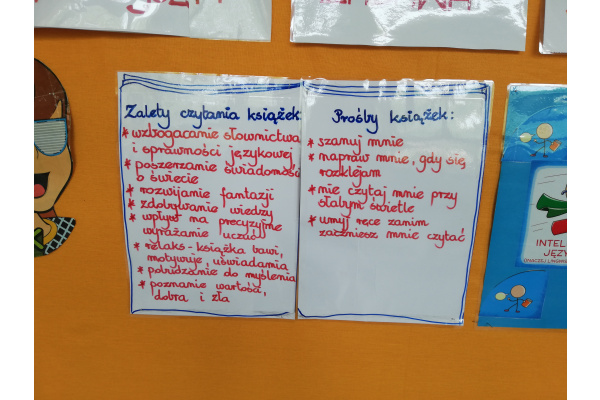 Zalety czytania książek:
* wzbogacanie słownictwa
i sprawności językowej
* poszerzanie świadomości
o świecie
* rozwijanie fantazji
* zdobywanie wiedzy
* wpływ na precyzyjne
wyrażanie uczuć
* relaks - książka bawi,
motywuje, uświadamia
* pobudzanie do myślenia
* poznanie wartości,
dobra i zła
Prośby książek:
* szanuj mnie
* napraw mnie, gdy się
rozklejam
* nie czytaj mnie przy
słabym świetle
* umyj ręce zanim
zaczniesz mnie czytać
INTEL
JĘZY